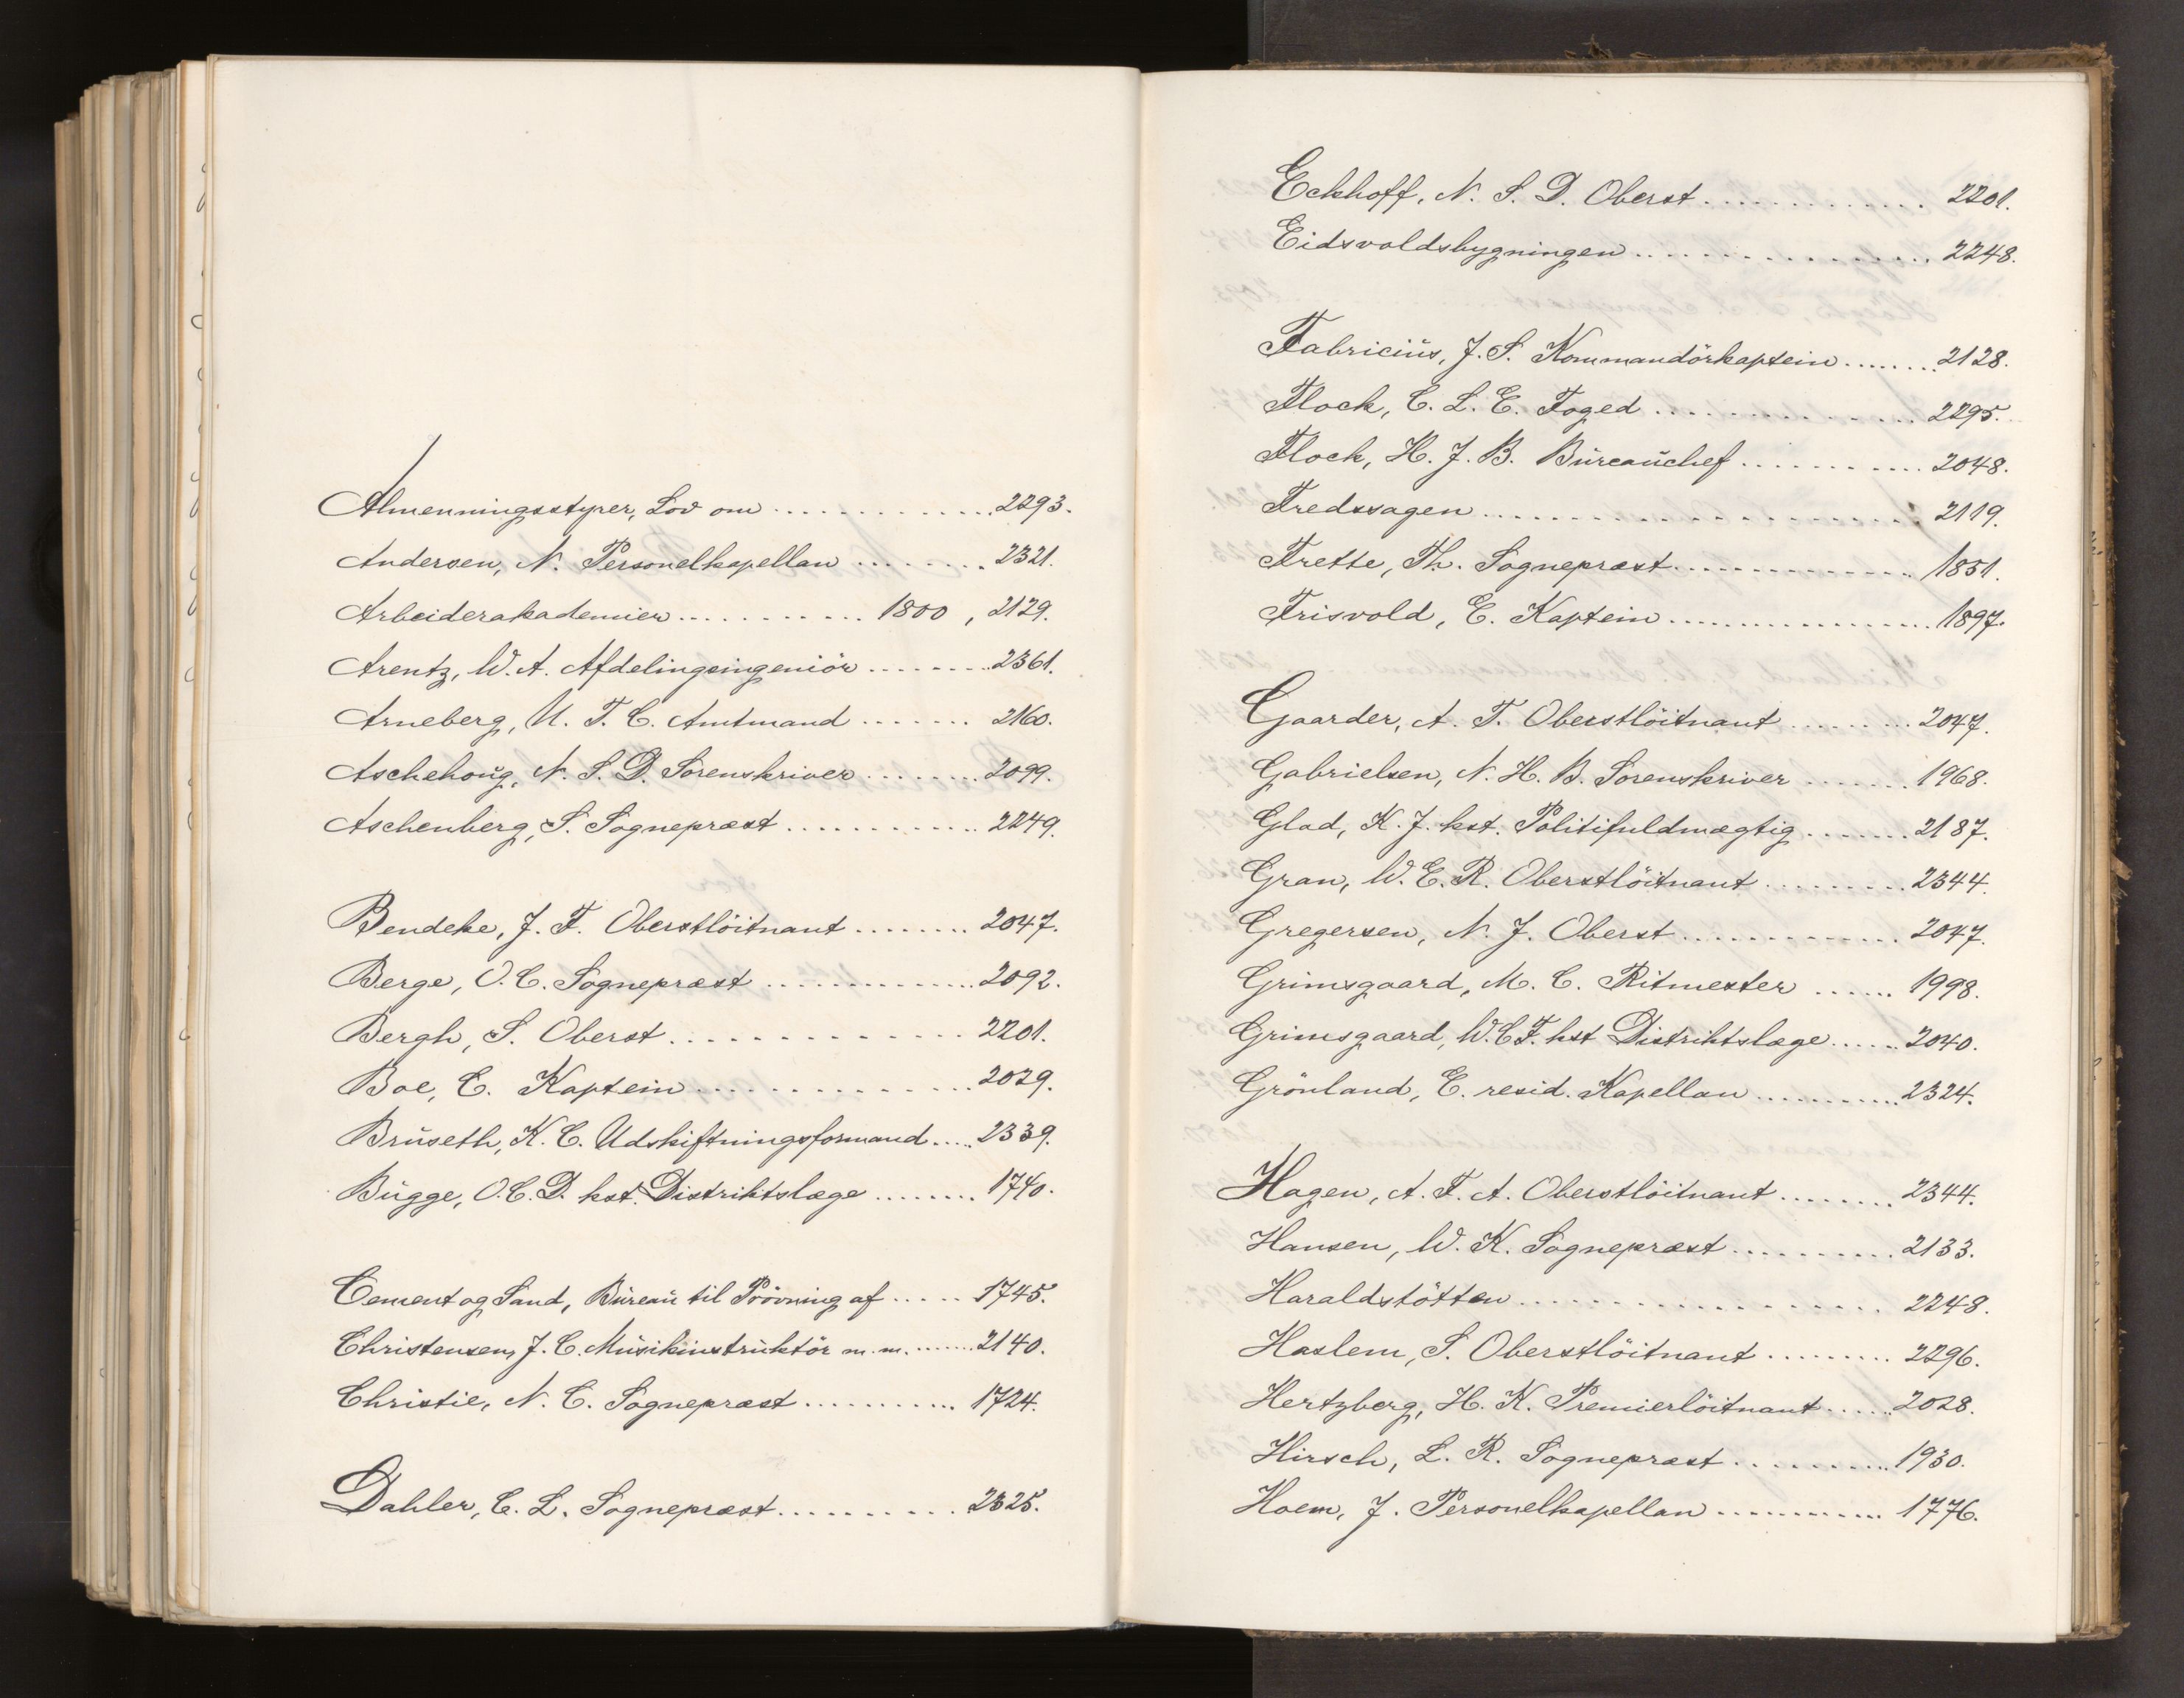 Almenningsstyrer, Lov om .............. 2293.
Andersen, N. Personelkapellan ......... 2321.
Arbeiderakademier ............ 1800, 2129.
Arentz, W. A. Afdelingsingeniör ........ 2361.
Arneberg, U. F. C. Amtmand ....... 2160.
Aschehoug, N. S. D. Sorenskriver ........ 2099.
Aschenberg, S. Sognepræst ............ 2249.
Bendeke, J. F. Oberstlöitnant ........ 2047.
Berge, O. C. Sognepræst .............. 2092.
Bergh, S. Oberst .............. 2201.
Boe, C. Kaptein .............. 2029.
Bruseth, K. C. Udskiftningsformand ..... 2339.
Bugge, O. C. D. kst. Distriktslæge ........ 1740.
Cement og Sand, Bureau til Prövning af ..... 1745.
Christensen, J. C. Musikinstruktör m. m. ....... 2140.
Christie, N. C. Sognepræst ........... 1724.
Dahler, C. L. Sognepræst .......... 2325.
Eckhoff, N. S. D. Oberst ............. 2201.
Eidsvoldsbygningen ............... 2248.
Fabricius, J. S. Kommandörkaptein ........ 2128.
Flock, C. L. E. Foged .............. 2295.
Flock, H. J. B. Bureauchef ........... 2048.
Fredssagen ..................... 2119.
Frette, Th. Sognepræst .............. 1851.
Frisvold, E. Kaptein .................. 1897.
Gaarder, A. T. Oberstlöitnant ......... 2047.
Gabrielsen, N. H. B. Sorenskriver ....... 1968.
Glad, K. J. kst. Politifuldmægtig ....... 2187.
Gran, W. E. R. Oberstlöitnant ......... 2344.
Gregersen, N. J. Oberst ............. 2047.
Grimsgaard, M. C. Ritmester ...... 1998.
Grimsgaard, W. C. F. kst Distriktslæge ...... 2040.
Grönland, E. resid. Kapellan ........... 2324.
Hagen, A. F. A. Oberstlöitnant ........ 2344.
Hansen, W. K. Sognepræst .......... 2133.
Haraldstötten .................. 2248.
Haslem, S. Oberstlöitnant ......... 2296.
Hertzberg, H. K. Premierlöitnant ..... 2028.
Hirsch, L. R. Sognepræst .......... 1930.
Hoem, J. Personelkapellan ............ 1776.